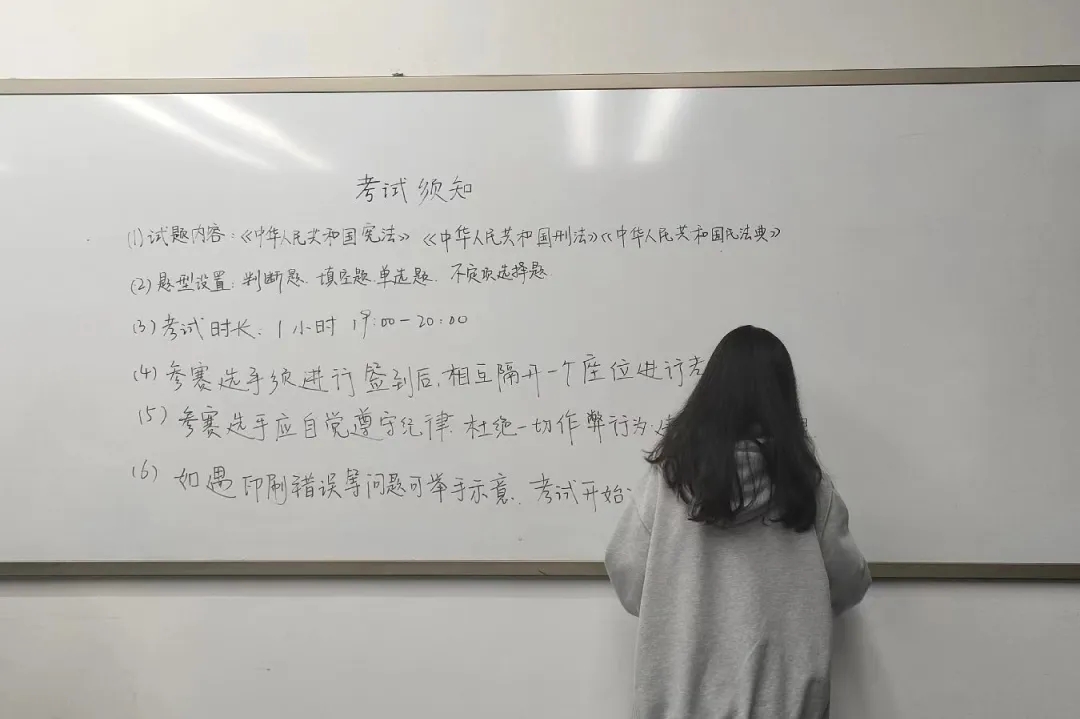 考试须知
(1)试题内容:《中华人民共和国宪法》《中华人民共和国刑法》《中华人民共和国民法典》
(2)题型设置:判断题、填空题、单选题、不定项选择题
(3)考试时长:1小时 19:00-20:00
(4)参赛选手须进行签到后,相互隔开一个座位进行考
(5)参赛选手应自觉遵守纪律、杜绝一切作弊行为,
(6)如遇印刷错误等问题可举手示意、考试开始